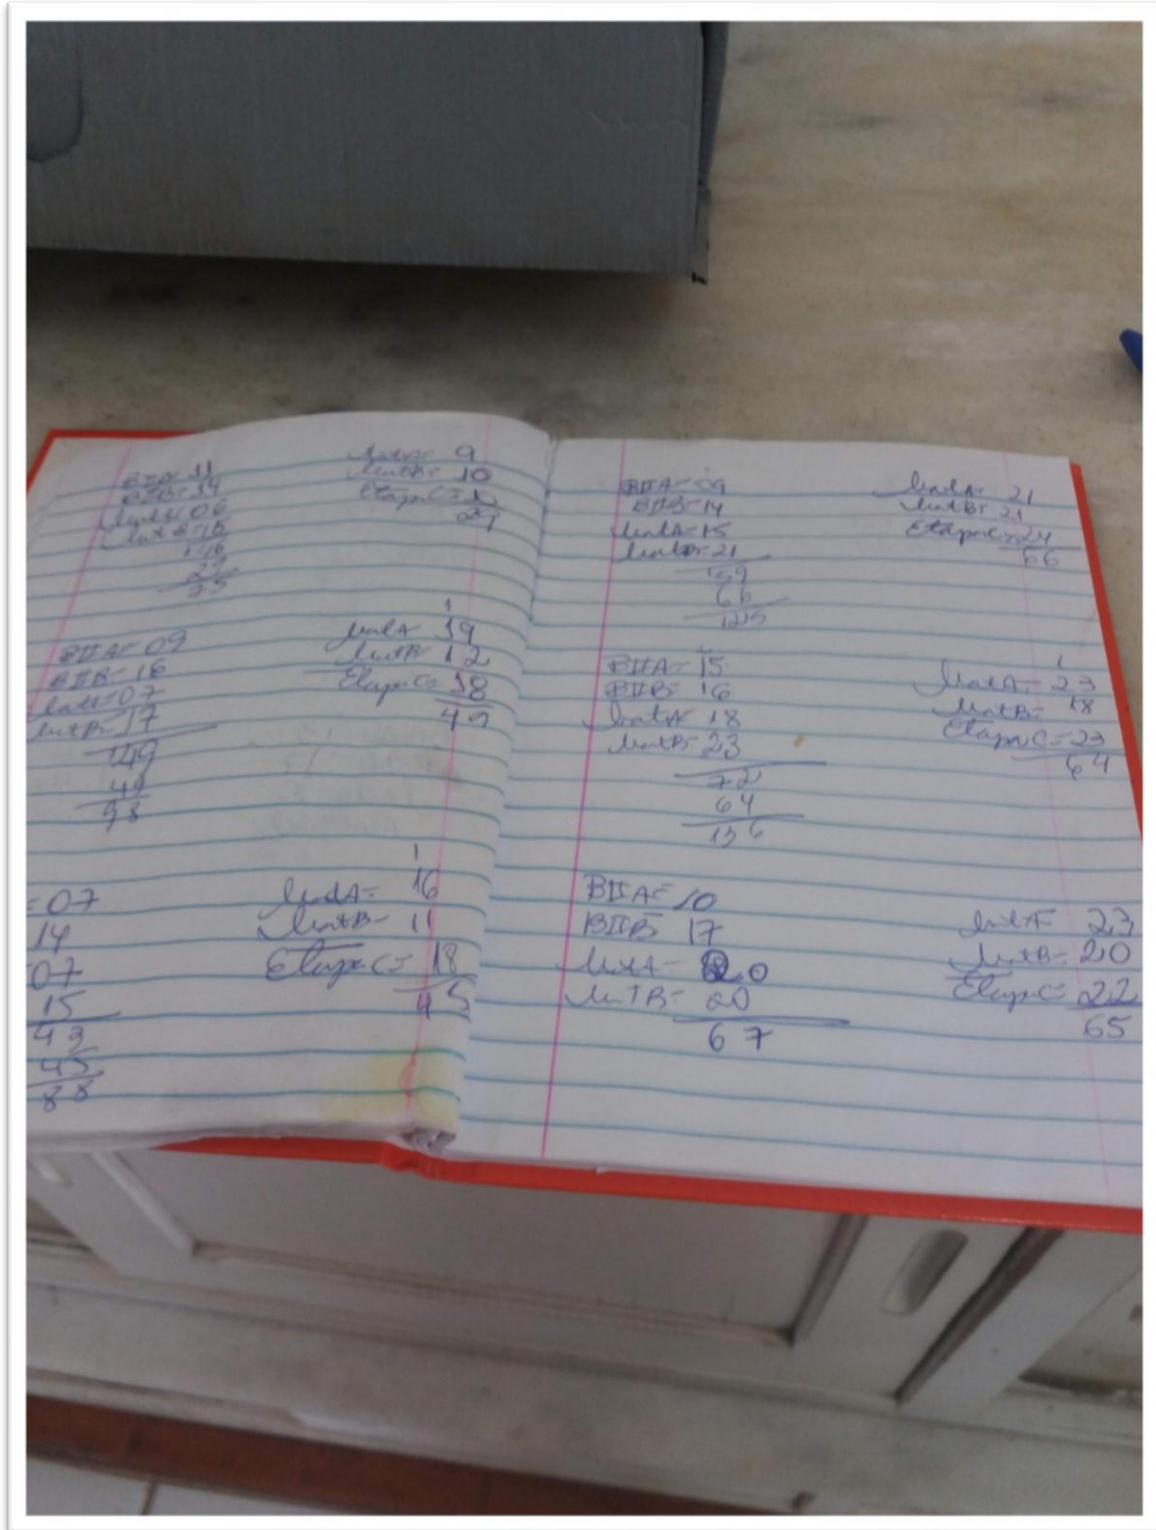 BIIA= 11
BIIB= 14
MatA= 06
MatB= 15
146
29
75
MatA= 9
MatB= 10
EtapaC= 10
29
BIIA= 09
BIIB= 16
MatA= 07
MatB= 17
149
49
98
1
MatA= 19
MatB= 12
EtapaC= 18
49
=07
14
07
15
43
45
88
1
MatA= 16
MatB= 11
EtapaC= 18
45
BIIA= 09
BIIB= 14
MatA= 15
MatB= 21
159
66
125
MatA= 21
MatB= 21
EtapaC= 24
66
BIIA= 15
BIIB= 16
MatA= 18
MatB= 23
72
64
136
1
MatA= 23
MatB= 18
EtapaC= 23
64
BIIA= 10
BIIB= 17
MatA= 20
MatB= 20
67
MatA= 23
MatB= 20
EtapaC= 22
65